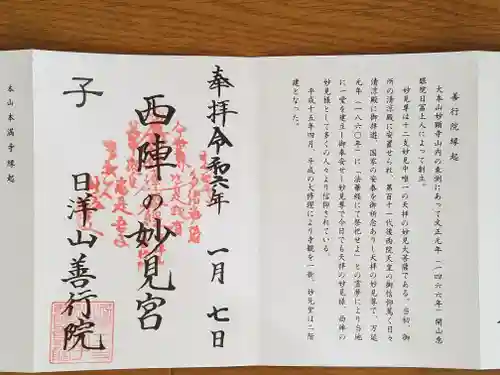 善行院縁起
大本山妙顕寺山内の東側にあって文正元年(一四六六年)開山恵
眼院日富上人によって創立。
妙見尊は十二支妙見中唯一の天拝の妙見大菩薩である。当初、御
所の清涼殿に安置せられ、第百十一代後西院天皇の御信仰篤く日々
清涼殿に御拝遊、国家の安泰を御祈念ありし天拝の妙見尊で、万延
元年(一八六〇年)に「法華経にて祭祀せよ」との霊夢により当地
に一愛を建立し御奉安せし妙見尊で今日でも天拝の妙見様、西陣の
妙見様として多くの人々より信仰されている。
平成十五年四月、平成の大修理により寺観を一新、妙見堂は二階
建となった。
奉拝 令和六年 一月 七日
西陣の妙見宮
日洋山善行院
子
本山本満寺縁起